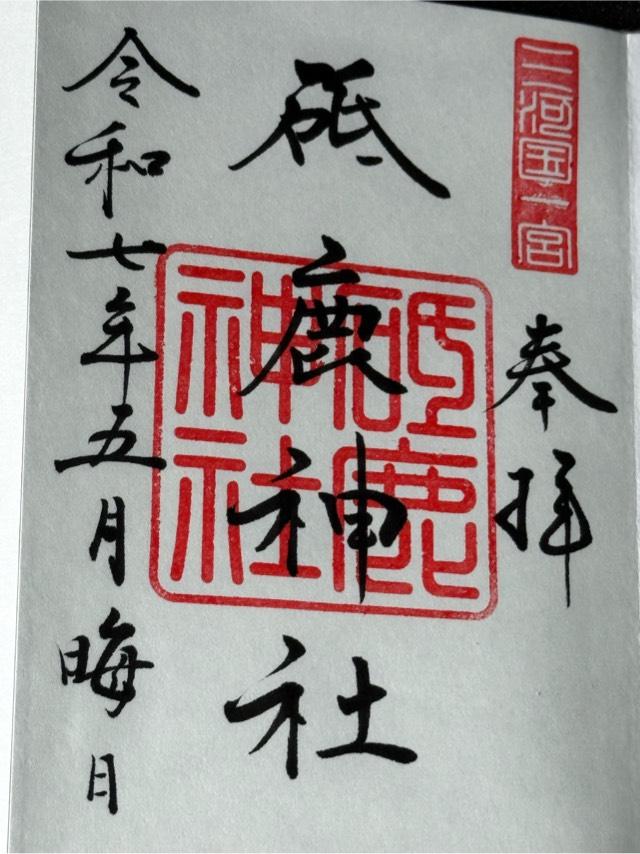 三河国一宮
奉拝
砥鹿神社
砥鹿
神社
令和七年五月晦日